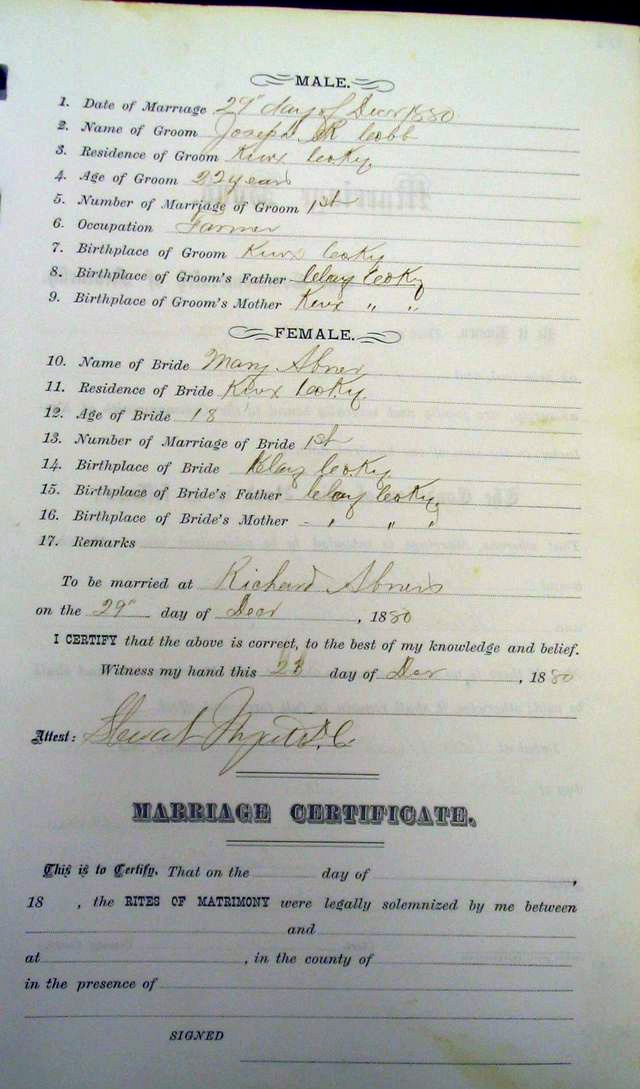 MALE.
1. Date of Marriage 29" day of Decr 1880
2. Name of Groom Joseph Cobb
3. Residence of Groom Knox Co Ky
4. Age of Groom 22 years
5. Number of Marriage of Groom 1st
6. Occupation Farmer
7. Birthplace of Groom Knox Co Ky
8. Birthplace of Groom's Father Clay Co Ky
9. Birthplace of Groom's Mother Knox " "
FEMALE.
10. Name of Bride Mary Abner
11. Residence of Bride Knox Co Ky
12. Age of Bride 18
13. Number of Marriage of Bride 1st
14. Birthplace of Bride Clay Co Ky
15. Birthplace of Bride's Father Clay Co Ky
16. Birthplace of Bride's Mother " " "
17. Remarks
To be married at Richard Abners
on the 29" day of Decr, 1880
I CERTIFY that the above is correct, to the best of my knowledge and belief.
Witness my hand this day of Decr, 1880
Attest:
MARRIAGE CERTIFICATE.
This is to Certify. That on the day of ,
18 , the RITES OF MATRIMONY were legally solemnized by me between
and
at , in the county of
in the presence of
SIGNED